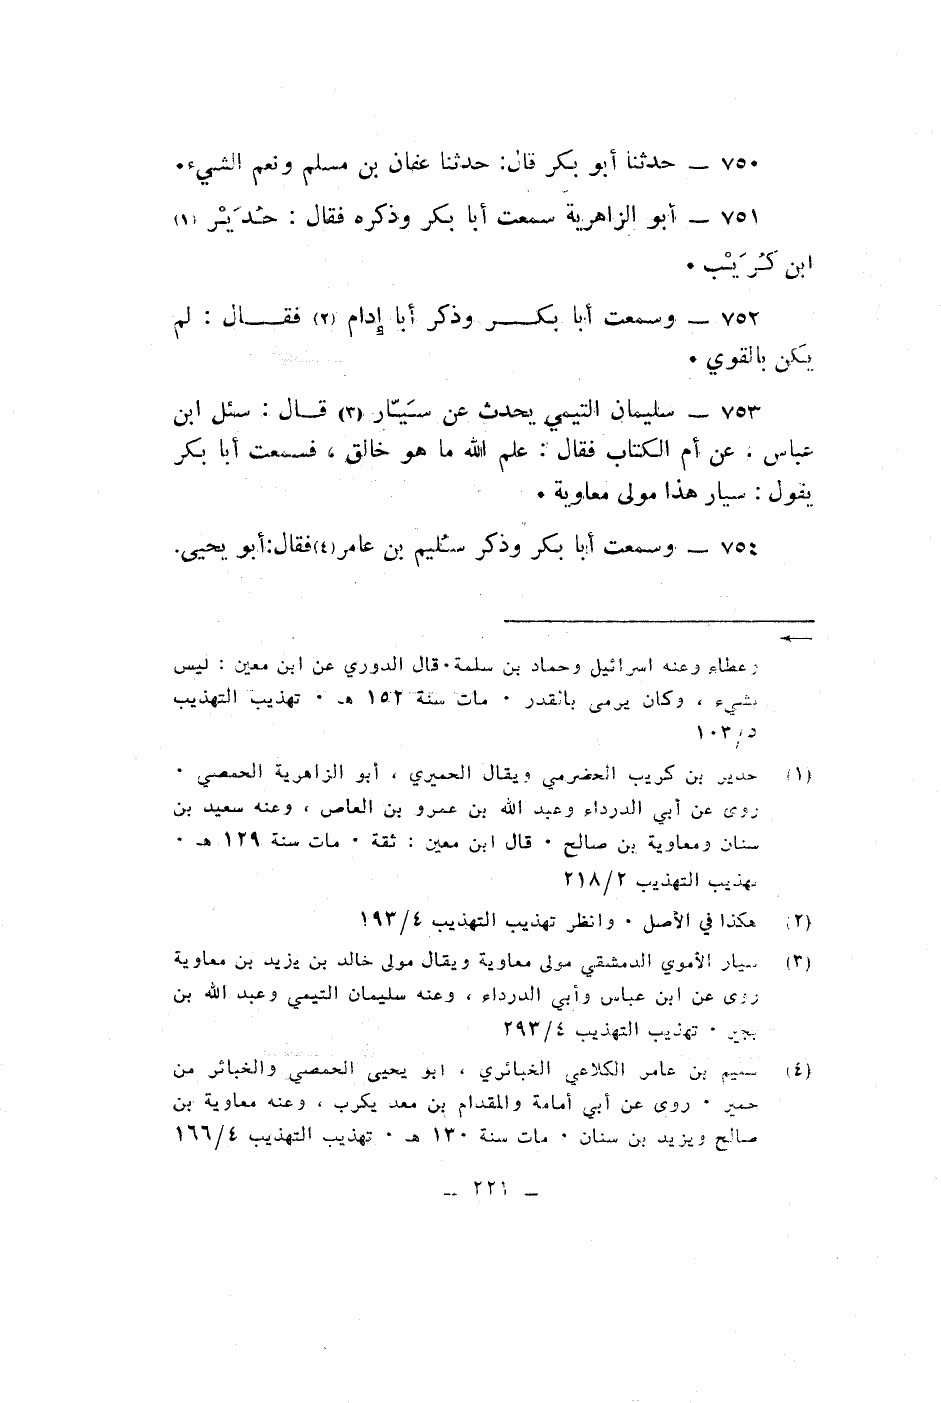 ٧٥٠ ــ حدثنا أبو بكر قال: حدثنا عفان بن مسلم ونعم الشيء٠
٧٥١ ــ أبو الزاهرية سمعت أبا بكر وذكره فقال : حُدَيْر (١)
ابن كُرَيْب ٠
٧٥٢ ــ وسمعت أبا بكــر وذكر أبا إدام (٢) فقــال : لم
يكن بالقوي ٠
٧٥٣ ــ سليمان التيمي يحدث عن سَيّار (٣) قــال : سئل ابن
عباس ، عن أم الكتاب فقال : علم الله ما هو خالق ، فسمعت أبا بكر
يقول : سيار هذا مولى معاوية ٠
٧٥٤ ــ وسمعت أبا بكر وذكر سُليم بن عامر(٤)فقال:أبو يحيى.
←
وعطاء وعنه اسرائيل وحماد بن سلمة٠قال الدوري عن ابن معين : ليس
بشيء ، وكان يرمى بالقدر ٠ مات سنة ١٥٢ هـ ٠ تهذيب التهذيب
١٠٣/٥
(١) حدير بن كريب الحضرمي ويقال الحميري ، أبو الزاهرية الحمصي ٠
روى عن أبي الدرداء وعبد الله بن عمرو بن العاص ، وعنه سعيد بن
سنان ومعاوية بن صالح ٠ قال ابن معين : ثقة ٠ مات سنة ١٢٩ هـ ٠
تهذيب التهذيب ٢١٨/٢
(٢) هكذا في الأصل ٠ وانظر تهذيب التهذيب ١٩٣/٤
(٣) سيار الأموي الدمشقي مولى معاوية ويقال مولى خالد بن يزيد بن معاوية
روى عن ابن عباس وأبي الدرداء ، وعنه سليمان التيمي وعبد الله بن
بجير ٠ تهذيب التهذيب ٢٩٣/٤
(٤) سليم بن عامر الكلاعي الخبائري ، ابو يحيى الحمصي والخبائر من
حمير ٠ روى عن أبي أمامة والمقدام بن معد يكرب ، وعنه معاوية بن
صالح ويزيد بن سنان ٠ مات سنة ١٣٠ هـ ٠ تهذيب التهذيب ١٦٦/٤
ــ ٢٢١ ــ